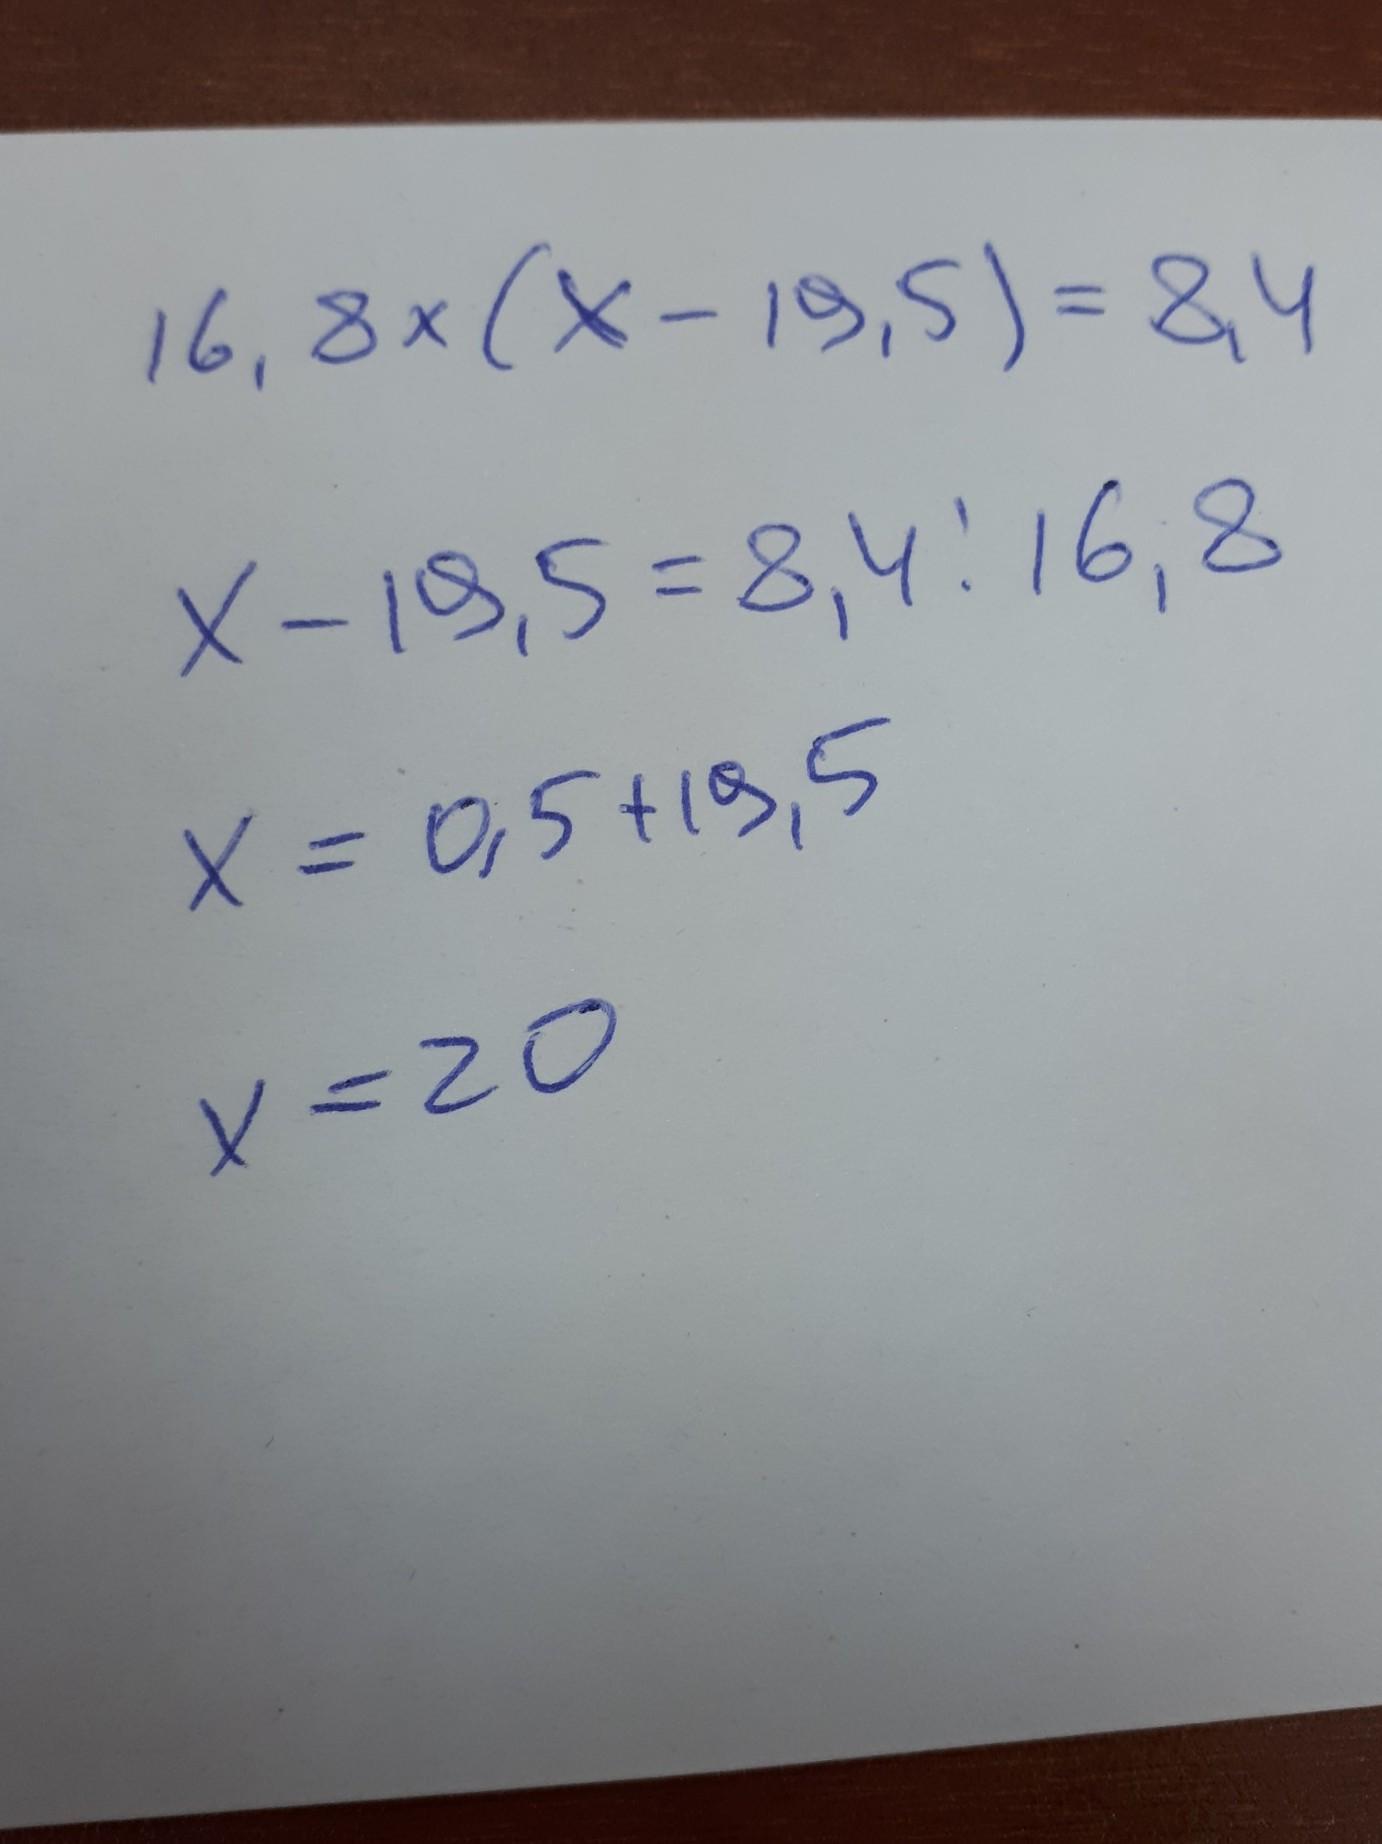 16,8x(x-19,5)=8,4
x-19,5=8,4:16,8
x=0,5+19,5
x=20